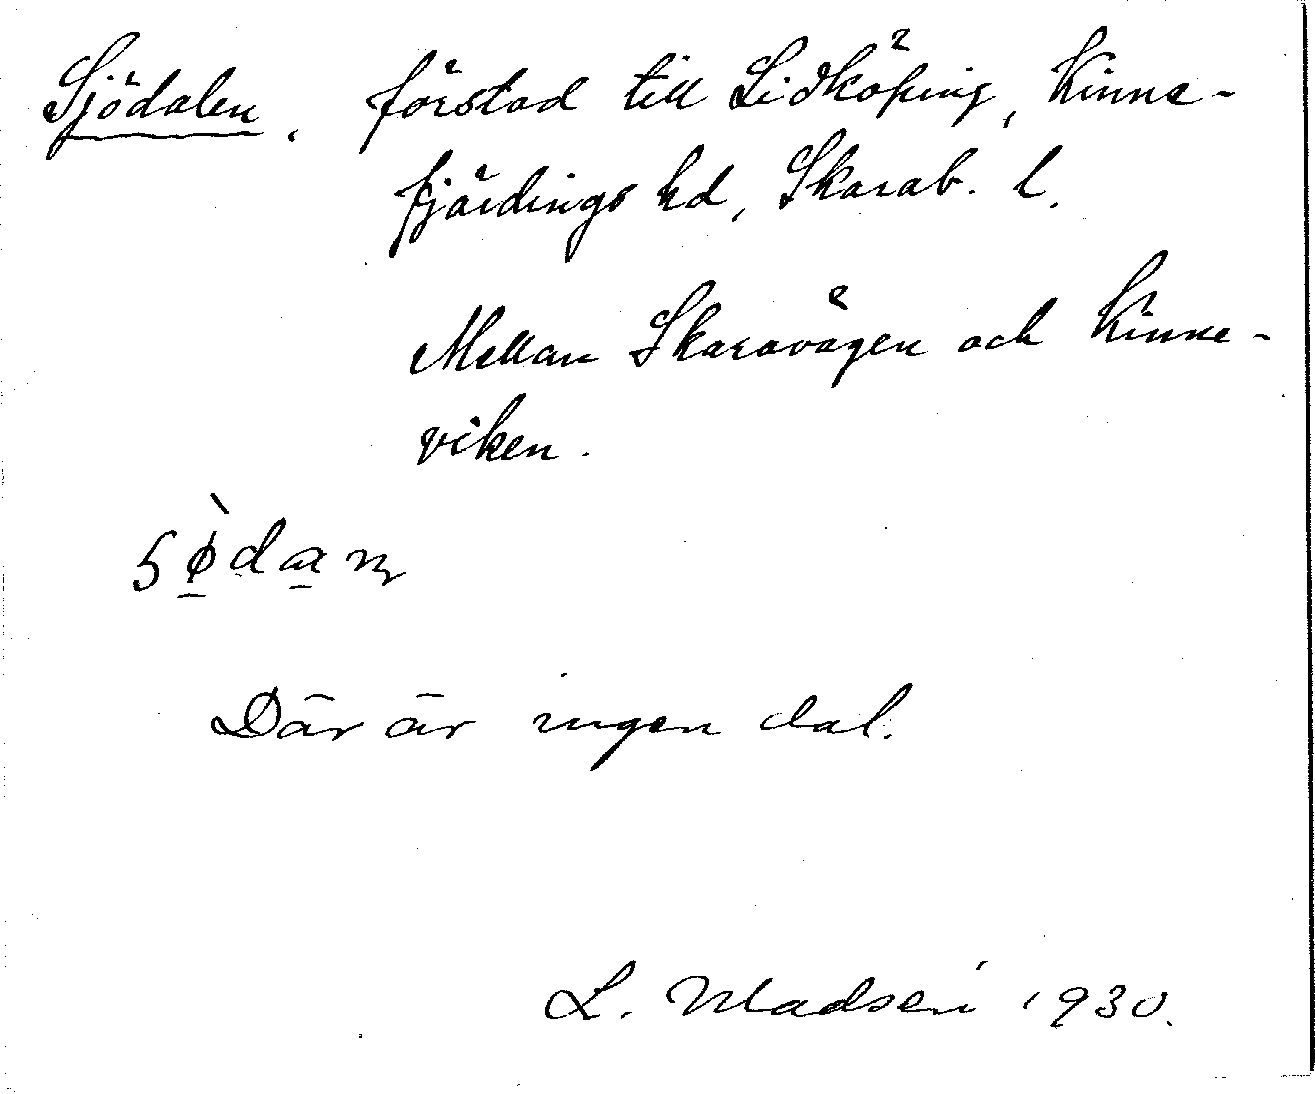 Sjödalen, förstad till Lidköping, Kinne-
fjärdings hd, Skarab. l.
Mellan Skaravägen och Kinne-
viken.
Där är ingen dal.
L. Madsen 1930.